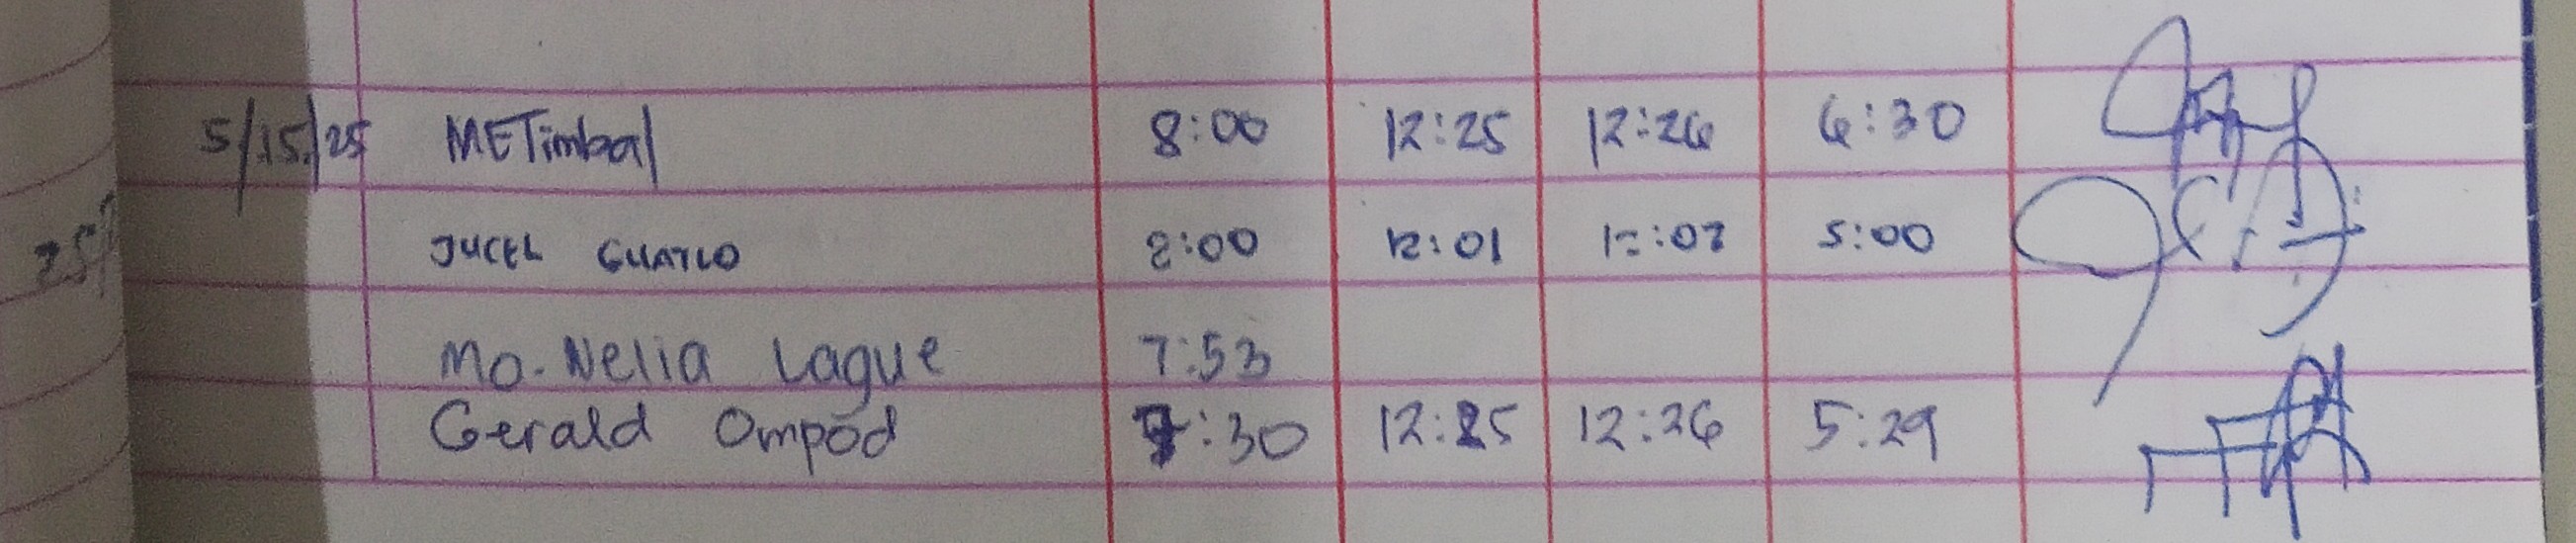 5/15/25 METimbal 8:00 12:25 12:26 6:30
JUCEL 8:00 12:01 12:02 5:00
Mo. Nelia Lague 7:53
Gerald Ompod 7:30 12:25 12:26 5:29